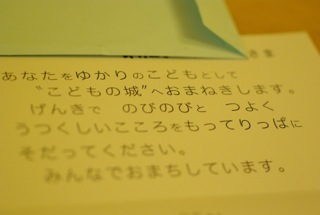 さま
あなたをゆかりのこどもとして
“こどもの城”へおまねきします。
げんきで のびのびと つよく
うつくしいこころをもってりっぱに
そだってください。
みんなでおまちしています。